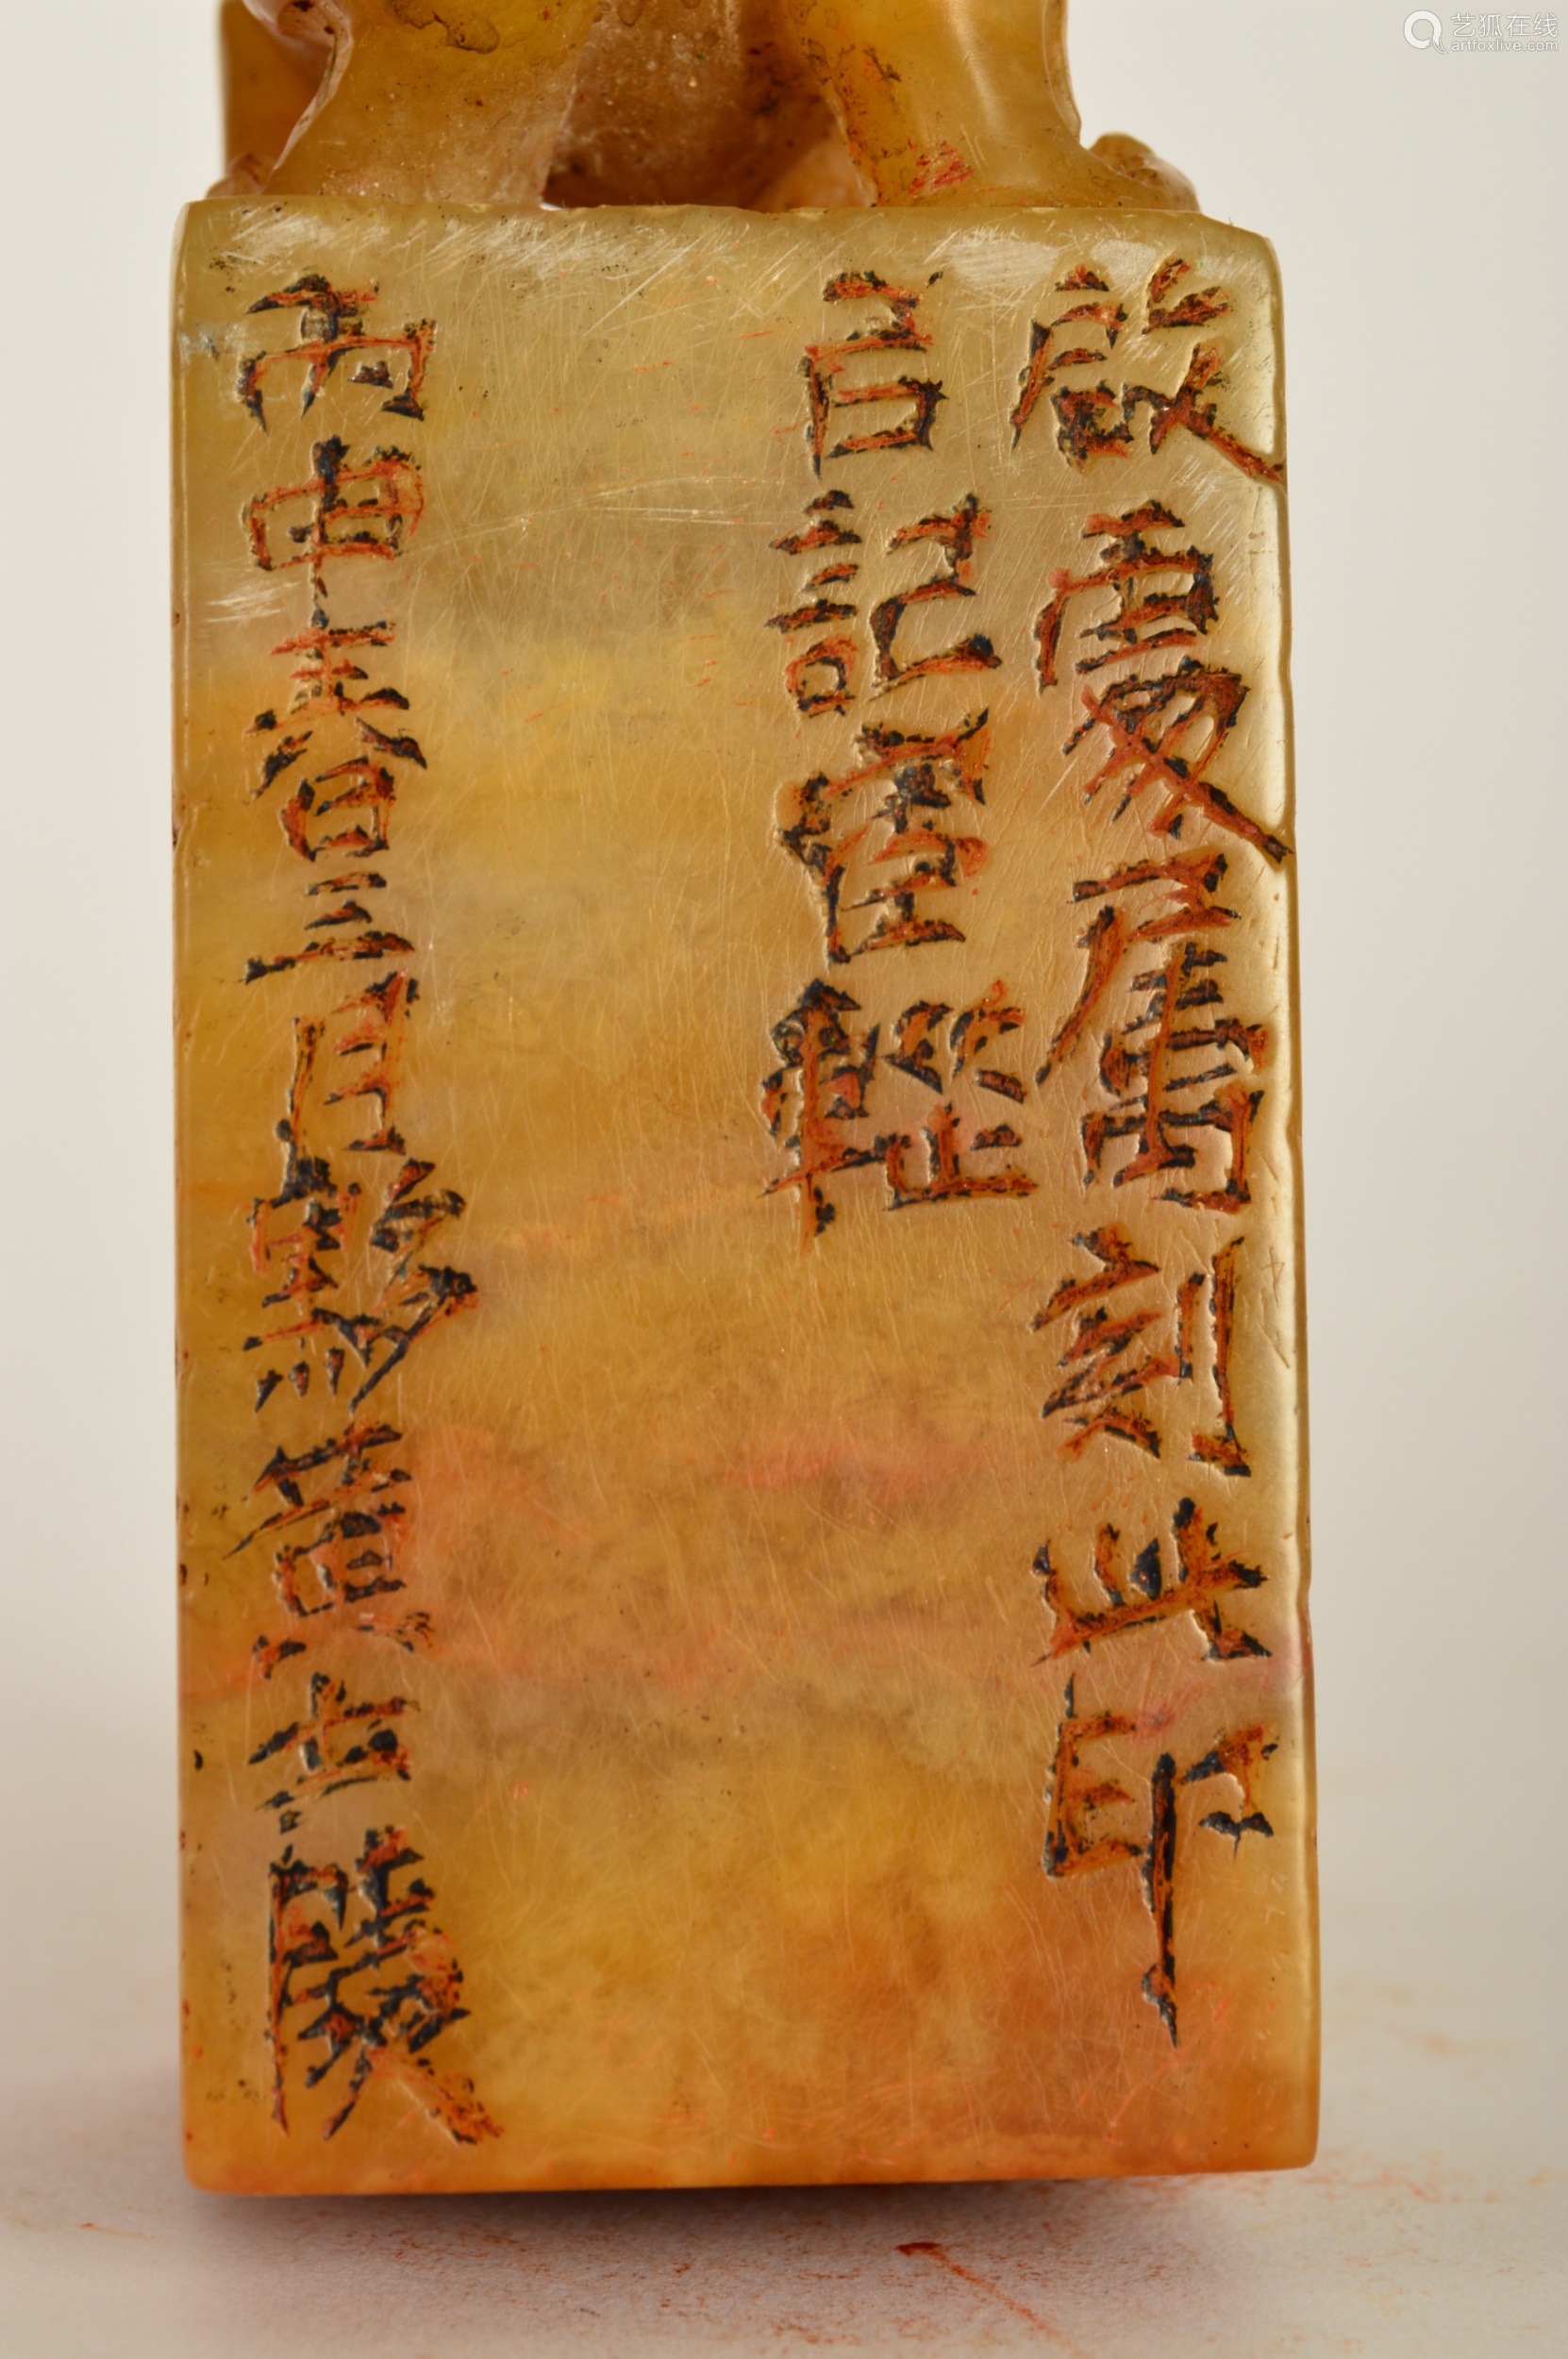 艺狐在线
artfoxlive.com
啟屬刻此印
記
丙申春三月黟黃士陵